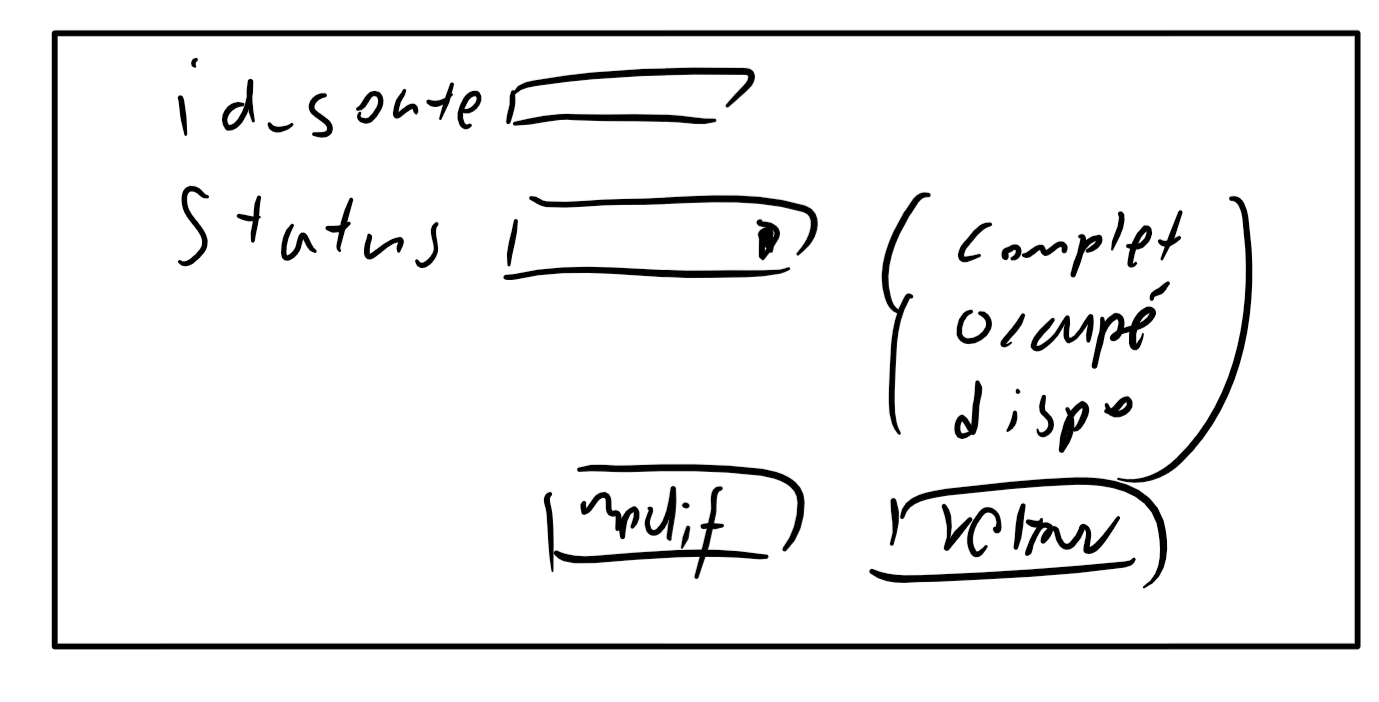 id_soute
Status
complet
occupé
dispo
modif
retour